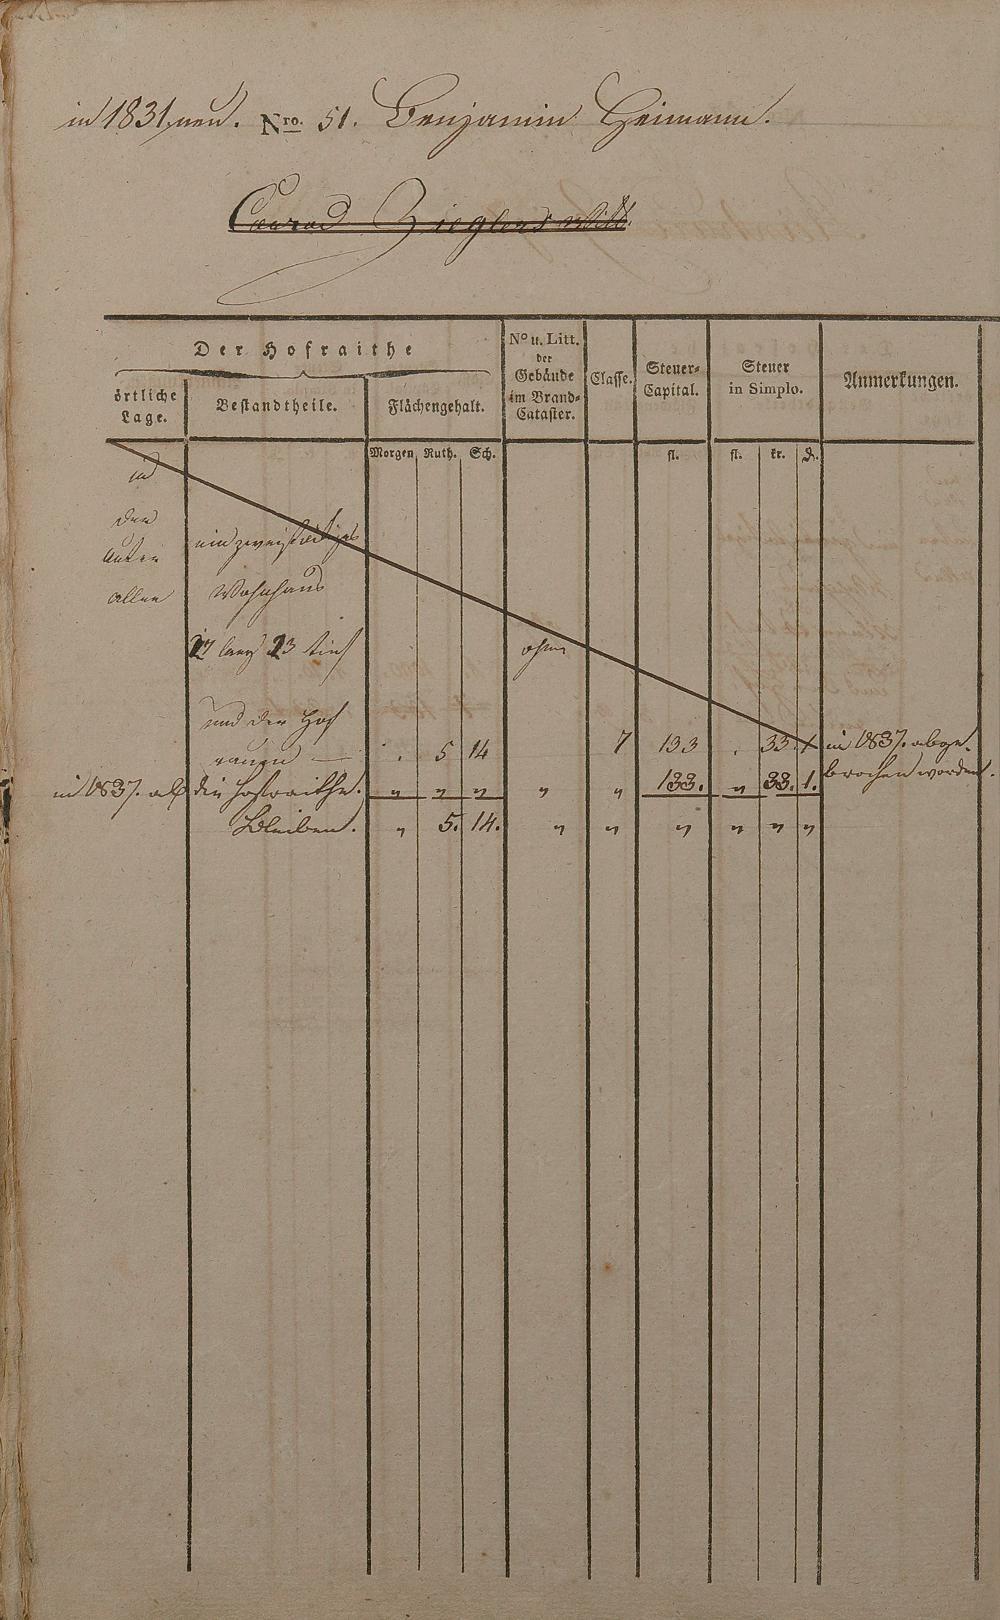 in 1831 neu. Nro. 51. Benjamin Heimann.
Conrad Zieglers Witb.
Der Hofraithe
örtliche Lage.
Bestandtheile.
Flächengehalt.
No u. Litt. der Gebäude im Brand-Cataster.
Classe.
Steuer-Capital.
Steuer in Simplo.
Anmerkungen.
Morgen Ruth. Sch. fl. fl. kr. d.
in
der
ein zweistöckiges
Wohnhaus
27 lang 23 tief ohne
und der Hof
. 5 14 7 133 . 33. 1 in 1837. abge-
brochen worden.
in 1837. ab die Hofraithe. " " " " " 133. " 33. 1.
Bleiben. " 5. 14. " " " " " "